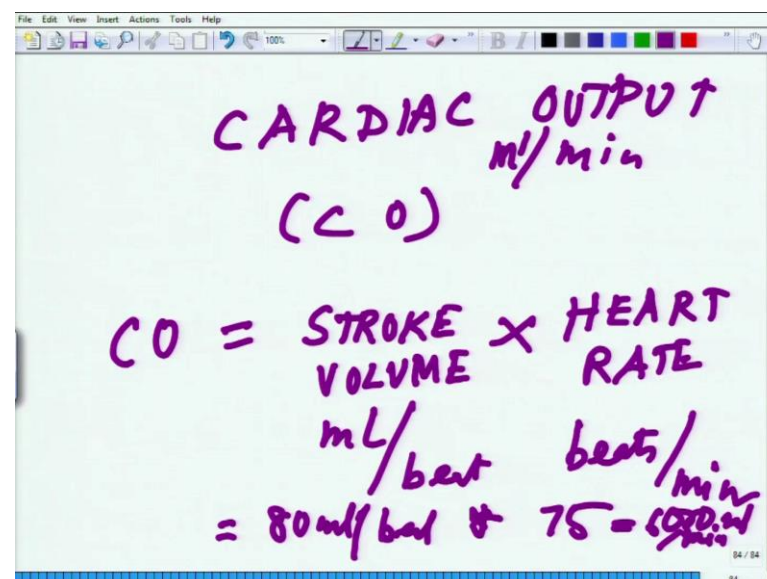 File Edit View Insert Actions Tools Help
100% B I
CARDIAC OUTPUT
ml/min
(CO)
CO = STROKE VOLUME × HEART RATE
mL/beat beats/min
= 80 ml/beat * 75 = 6000 ml/min
84 / 84
84